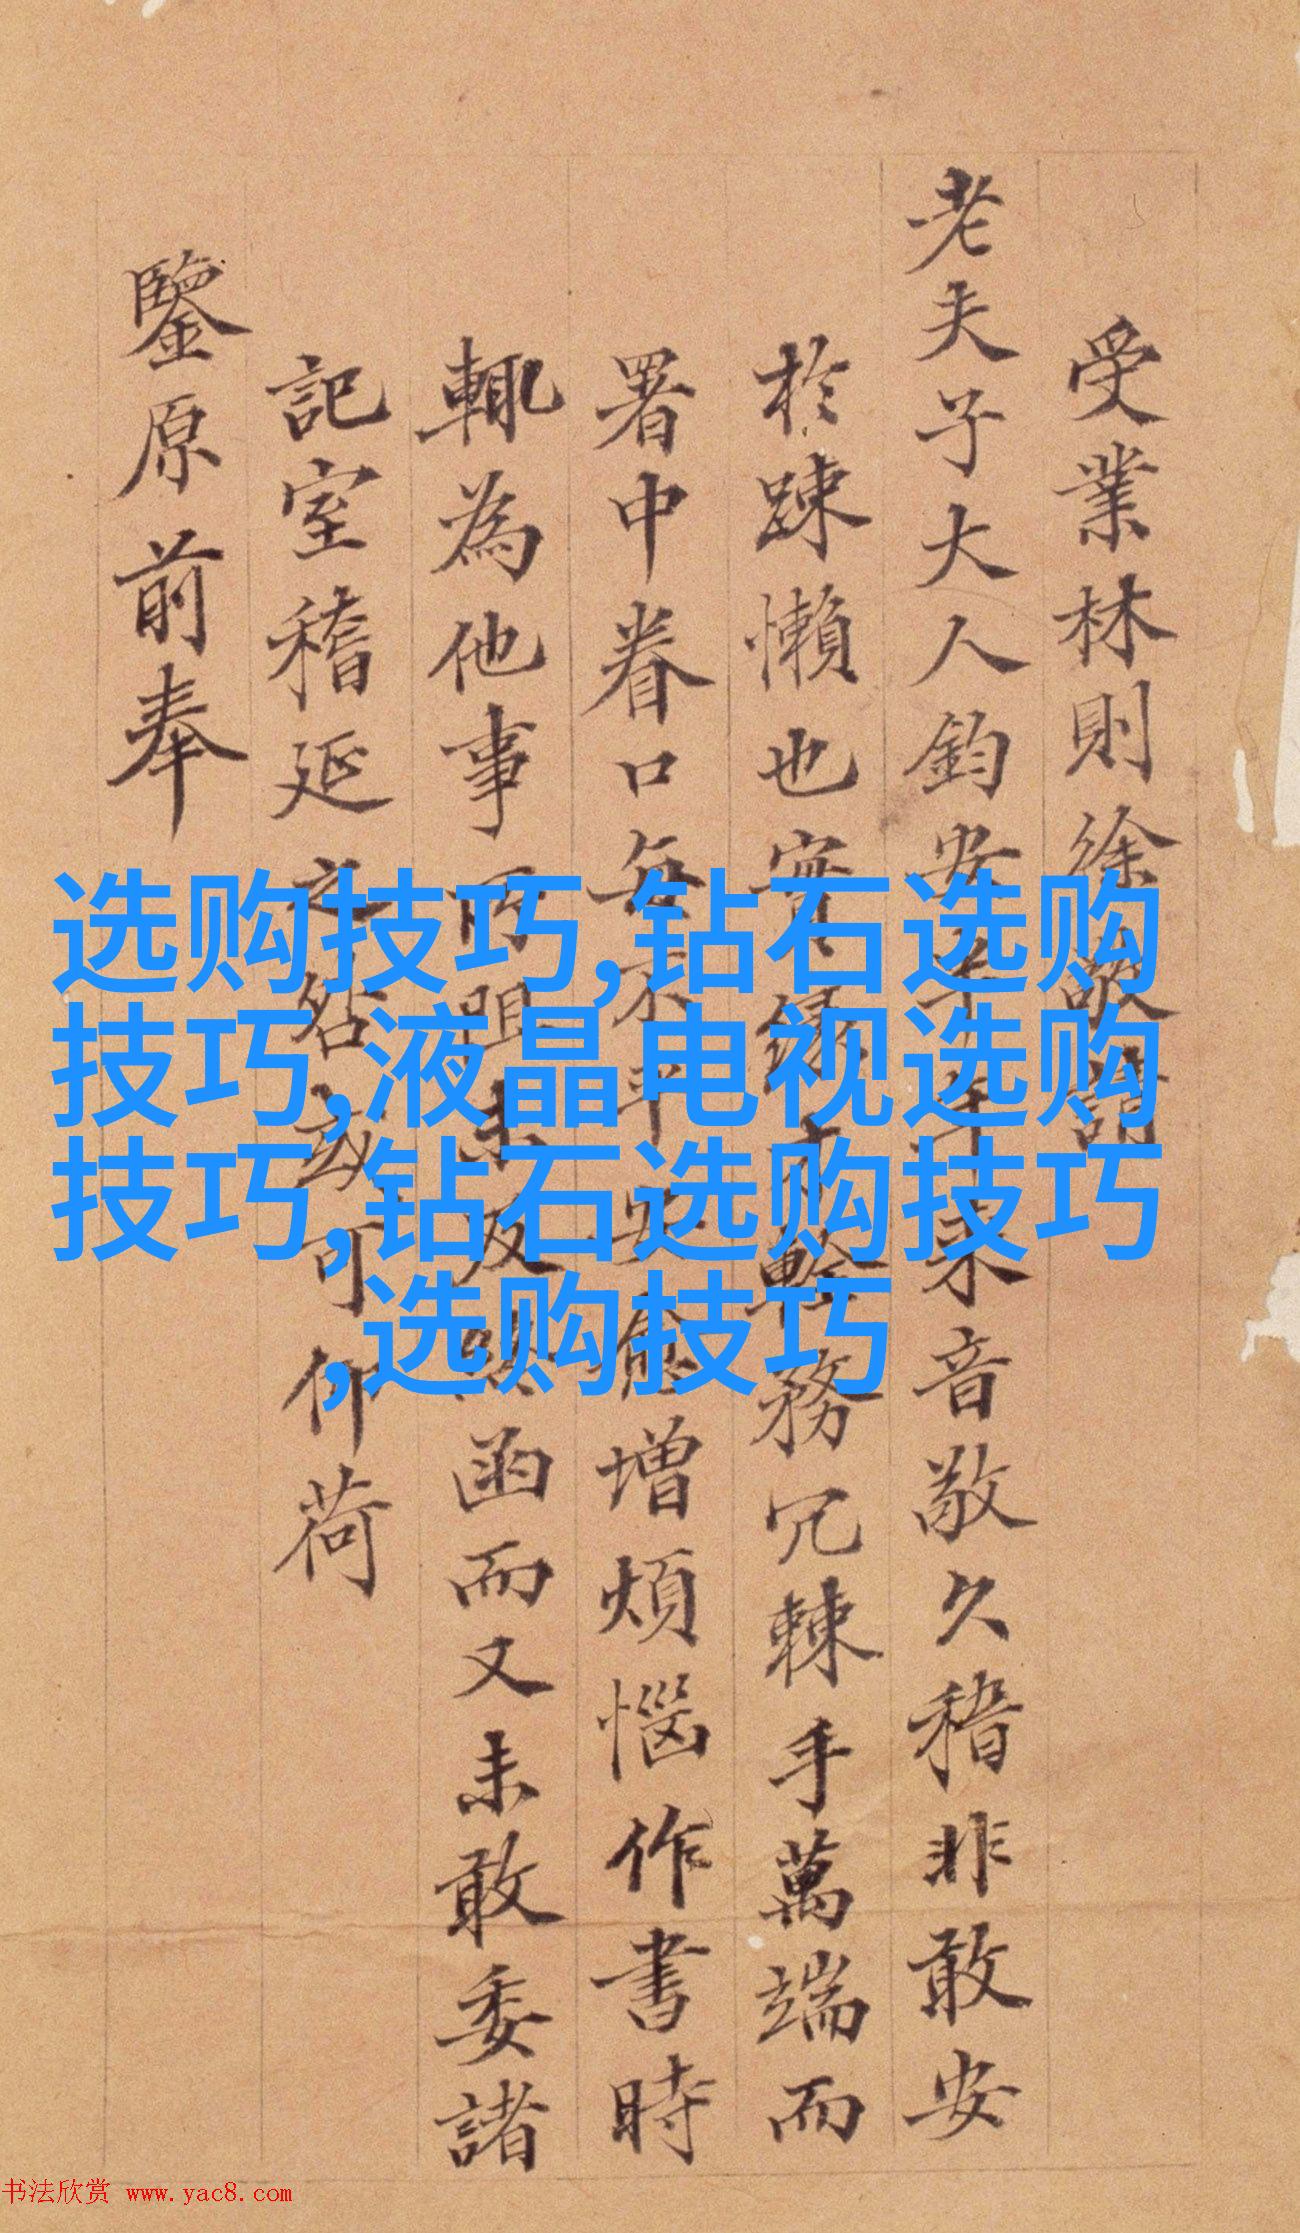 受業林則徐敬請
老夫子大人鈞安半年來音敬久稽非敢安
於踈懶也實緣才輇務冗棘手萬端而
署中眷口每不平安愈增煩惱作書時
輒為他事所阻未及緘函而又未敢委諸
記室稽延之咎或可仰荷
鑒原前奉
选购技巧,钻石选购
技巧,液晶电视选购
技巧,钻石选购技巧
,选购技巧
书法欣赏 www.yac8.com